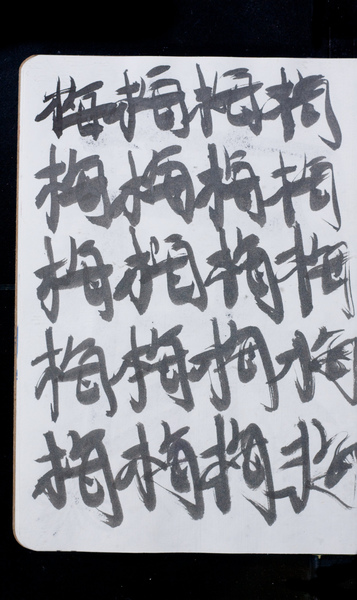 梅梅梅梅
梅梅梅梅
梅梅梅梅
梅梅梅梅
梅梅梅